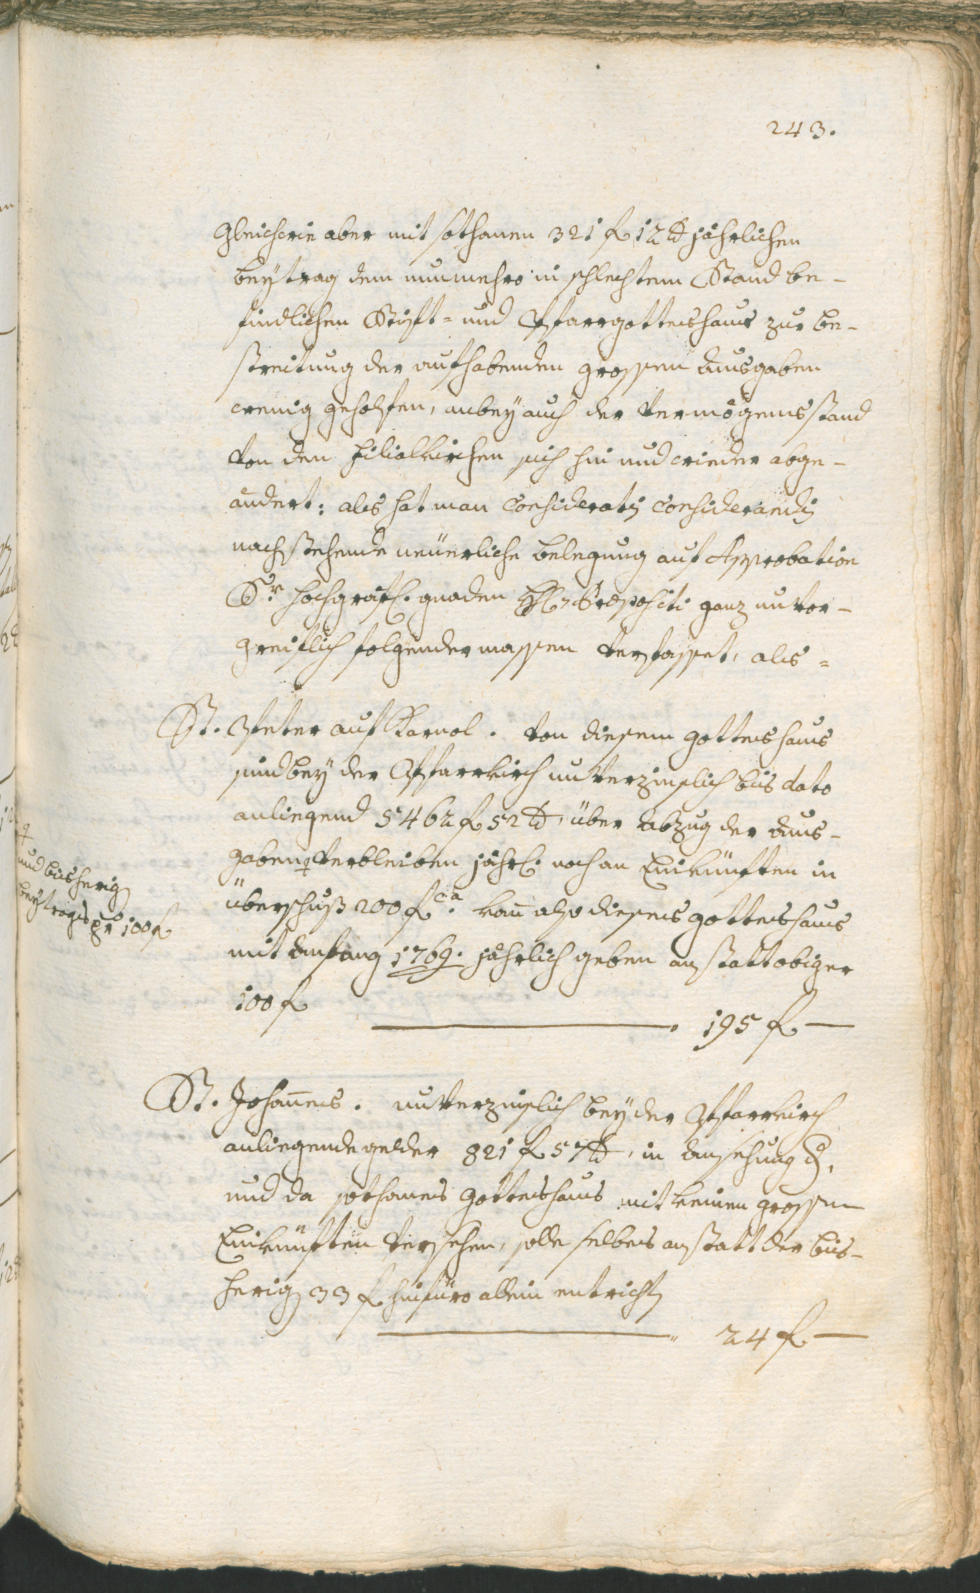 243.
Gleichwie aber mit sothanen 321 f 12 d jährlichen
beÿtrag dem nunmehro in schlechtem Stand be-
findlichen Stift- und Pfarrgotteshaus zur be-
streitung der aufhabenden grossen Ausgaben
wenig geholfen, anbeÿ auch der Vermögens stand
von den Filialkirchen sich hin und wieder abge-
ändert: als hat man consideratis considerandis
nach stehende neüerliche belegung auf Approbation
Sr. hochgräfl. gnaden H. H. Praepositi ganz unvor-
greiflich folgendermassen verfasset, als =
St. Peter auf Karnol. Von diesem gotteshaus
sind beÿ der Pfarrkirch unverzinslich bis dato
anliegend 5462 f 52 d, über Abzug der Aus-
gaben verbleiben jährl. noch an Einkünften in
überschuß 200 f ca. kan also dieses gotteshaus
mit Anfang 1769. jährlich geben anstatt obiger
100 f
195 f —
und bisherig
beÿtrags per 100 f
St. Johannes. unverzinslich beÿ der Pfarrkirch
anliegende gelder 821 f 57 d, in Ansehung d.
und da sothanes Gotteshaus mit keinen grossen
Einkünften versehen, solle selbes anstatt der bis-
herig 33 f hinfüro allein entrichten
24 f —